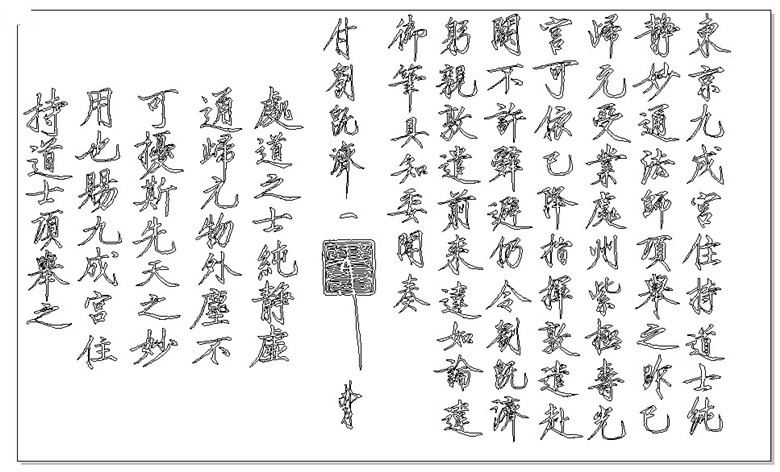 東京九成宮住持道士純
靜妙通法師項舉之昨已
歸元受業處州紫極壽光
宮可依已降指揮敦遣赴
闕不許辭避仍令劉既濟
躬親敦遣前來違如論違
御筆具知委聞奏
付劉既濟
處道之士純靜虛
通歸元物外塵不
可擾斯先天之妙
用也賜九成宮住
持道士項舉之